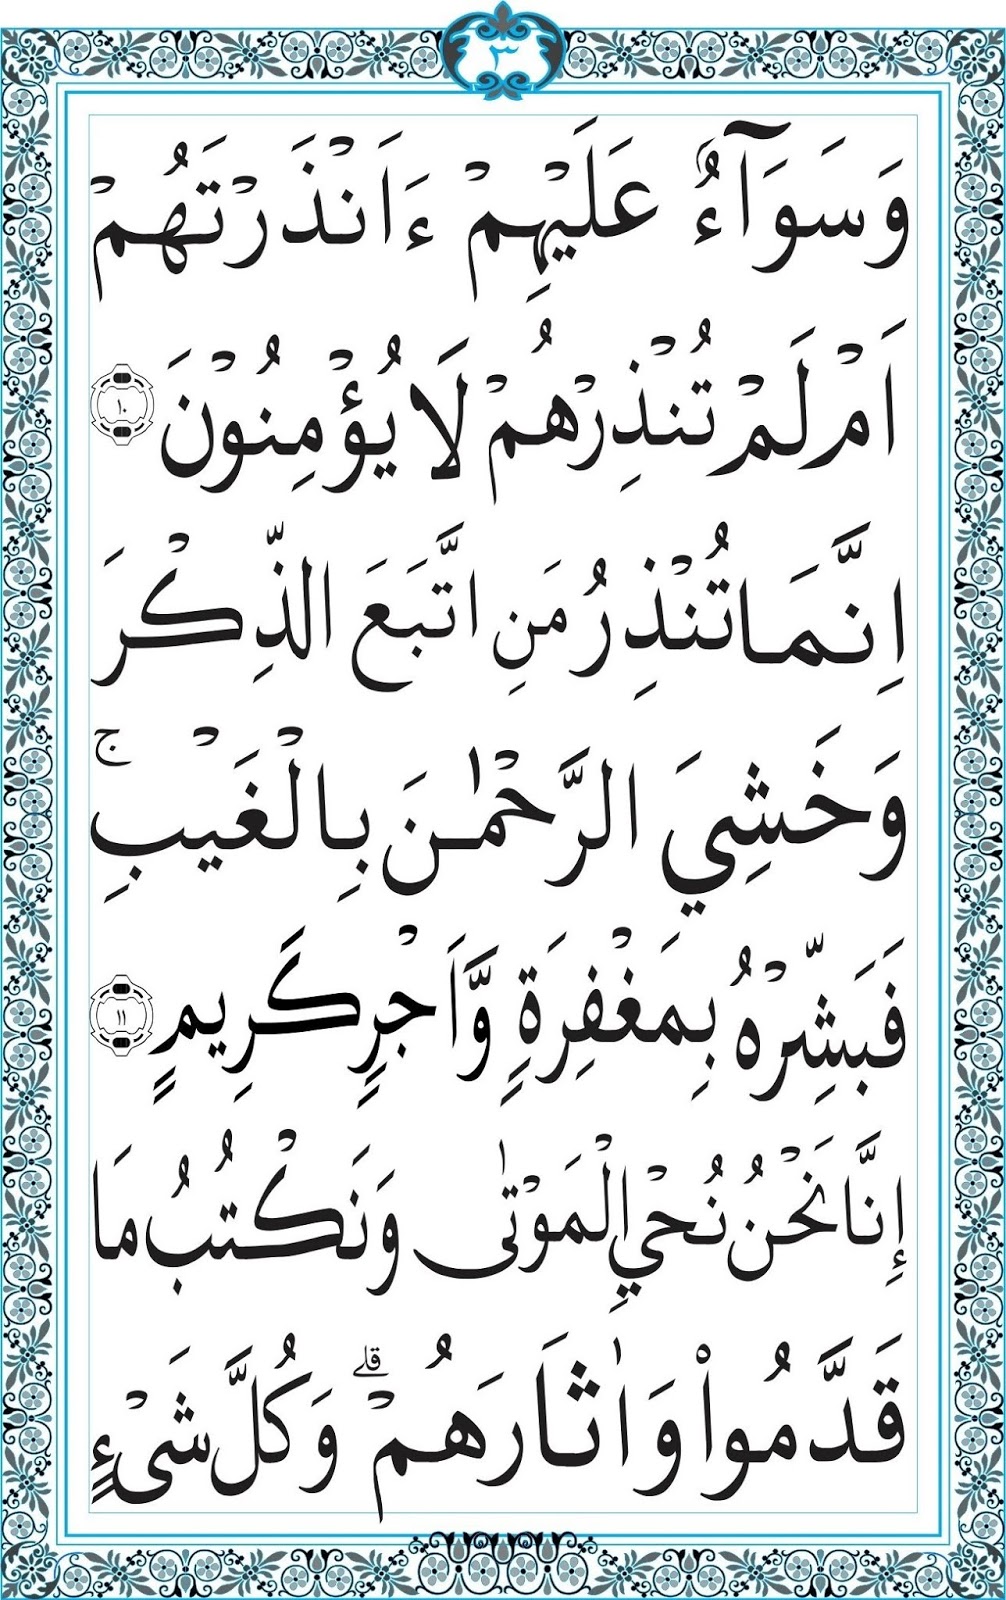 ٣
وَسَوَآءٌ عَلَيْهِمْ ءَاَنْذَرْتَهُمْ
اَمْ لَمْ تُنْذِرْهُمْ لَا يُؤْمِنُوْنَ ١٠
اِنَّمَا تُنْذِرُ مَنِ اتَّبَعَ الذِّكْرَ
وَخَشِيَ الرَّحْمٰنَ بِالْغَيْبِ ۚ
فَبَشِّرْهُ بِمَغْفِرَةٍ وَّاَجْرٍ كَرِيمٍ ١١
إِنَّا نَحْنُ نُحْيِ الْمَوْتٰى وَنَكْتُبُ مَا
قَدَّمُواْ وَاٰثَارَهُمْ ۗ وَكُلَّ شَىْءٍ